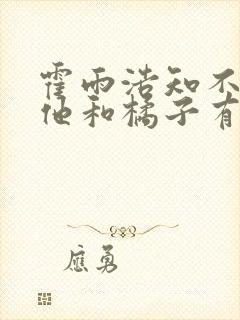 霍雨浩知不
他和橘子有
应勇